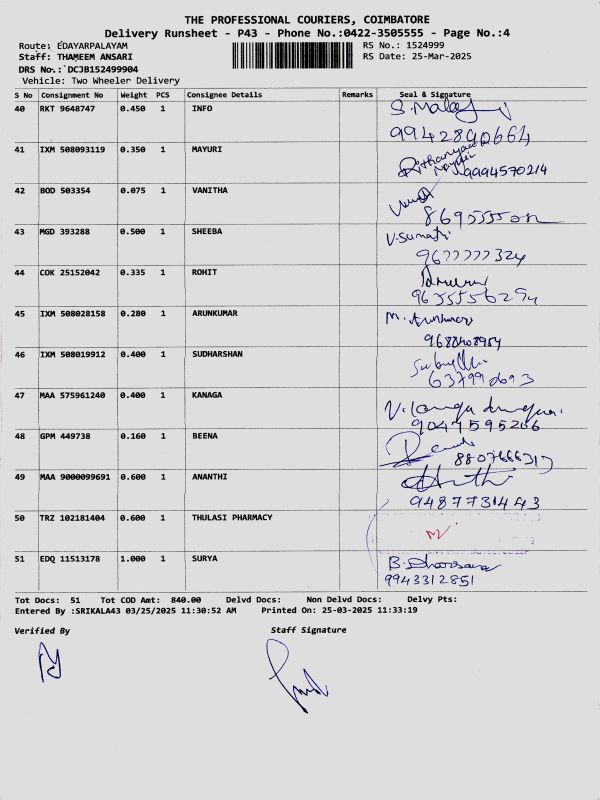 THE PROFESSIONAL COURIERS, COIMBATORE
Delivery Runsheet - P43 - Phone No.:0422-3505555 - Page No.:4
Route: EDAYARPALAYAM RS No.: 1524999
Staff: THAMEEM ANSARI RS Date: 25-Mar-2025
DRS No.: DCJB152499904
Vehicle: Two Wheeler Delivery
S No Consignment No Weight PCS Consignee Details Remarks Seal & Signature
40 RKT 9648747 0.450 1 INFO
9942890664
41 IXM 508093119 0.350 1 MAYURI
9994570214
42 BOD 503354 0.075 1 VANITHA
43 MGD 393288 0.500 1 SHEEBA V.Sumathi
9677777324
44 COK 25152042 0.335 1 ROHIT
45 IXM 508028158 0.280 1 ARUNKUMAR M. Arunkumar
9688408954
46 IXM 508019912 0.400 1 SUDHARSHAN
47 MAA 575961240 0.400 1 KANAGA
48 GPM 449738 0.160 1 BEENA
8807666317
49 MAA 9000099691 0.600 1 ANANTHI
9487731443
50 TRZ 102181404 0.600 1 THULASI PHARMACY
51 EDQ 11513178 1.000 1 SURYA
9943312851
Tot Docs: 51 Tot COD Amt: 840.00 Delvd Docs: Non Delvd Docs: Delvy Pts:
Entered By :SRIKALA43 03/25/2025 11:30:52 AM Printed On: 25-03-2025 11:33:19
Verified By Staff Signature